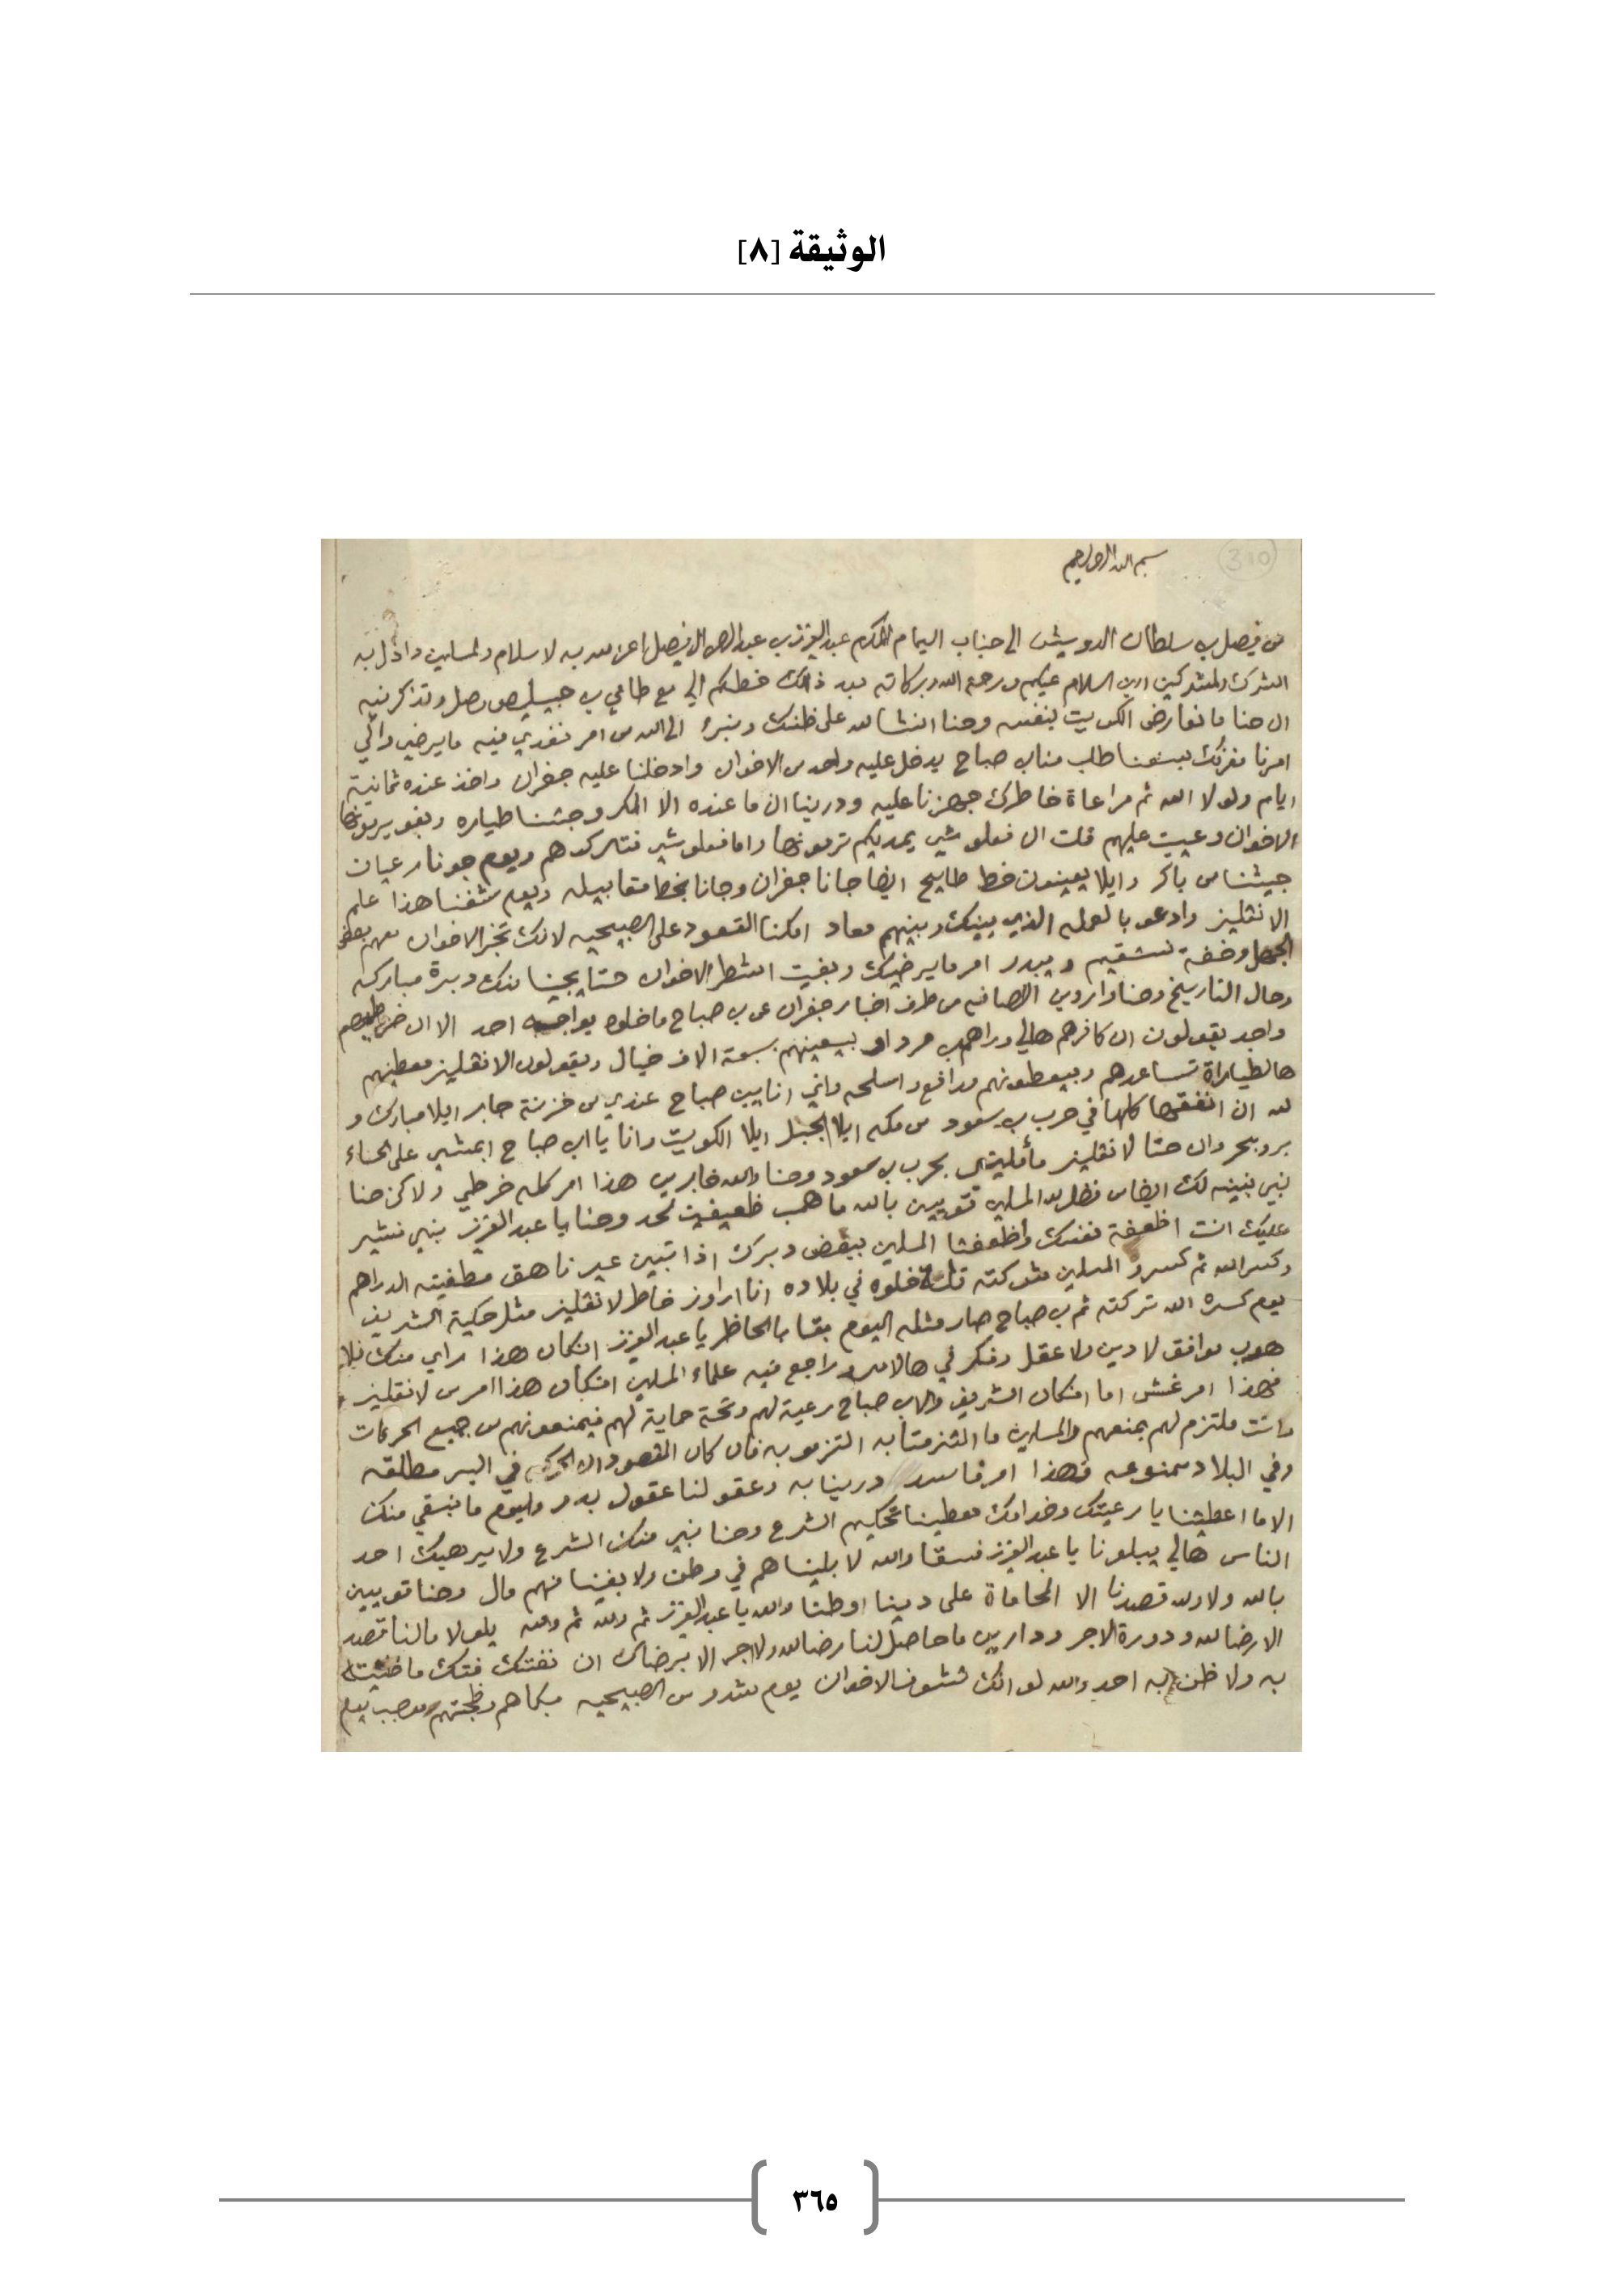 الوثيقة [٨]
310
بسم الله الرحمن الرحيم
من فيصل بن سلطان الدويش الى جناب الامام المكرم عبدالعزيز بن عبدالرحمن ال فيصل اعز الله به لاسلام ولمسلمين واذل به
الشرك ولمشركين امين السلام عليكم ورحمة الله وبركاته بعد ذالك خطكم الي مع طامي بن وصل وتذكر فيه
ان حنا ما نعارض الكويت بنفسه وحنا انشالله على ظنك ونبرء الى الله من امر نغدي فيه ما يرضي والي
امرنا طلب منا بن صباح يدخل عليه واحد من الاخوان وادخلنا عليه جفران واخذ عنده ثمانية
ايام ولولا الله ثم مراعاة خاطرك جهزنا عليه ودرينا ان ما عنده الا المكر وجتنا طياره وبغو يرمونها
الاخوان وعييت عليهم قلت ان فعلو شي يمديكم ترمونها واما فعلو شي فتاركوهم ويوم جونا رعيان
جيشنا من باكر وايلا خط طايح ايضا جانا جفران وجانا بخط متعابيله ويوم شفنا هذا علم
الانقليز وادعو بالعمله الذي بينك وبينهم معاد امكنا القعود على الصبيحيه لانك تخبر الاخوان معهم بعض
الجهل وخفة ويبدر امر ما يرضيك وبغيت الاخوان حتا يجينا منك دبرة مباركه
وحال التاريخ وحنا واردين الصافه من طرف اخبار جفران عن بن صباح ما خلوه يواجهه احد الا ان
واجد يقولون ان كافرهم هالي دراهم بسبعة الاف خيال ويقولون الانقليز معطينهم
هالطياراة تساعدهم وبيعطونهم مدافع واسلحه واني انا يبن صباح عندي من خزنة جابر ايلا مبارك و
لله ان انفقها كلها في حرب بن سعود من مكه ايلا الجبل ايلا الكويت وانا يا ابن صباح ابمشي على الحساء
بر وبحر وان حتا لانقليز بحرب بن سعود وحنا والله خابرين هذا امر كله خرطي ولاكن حنا
نبي نبينه لك ايضا من فظل الله المسلمين قويين بالله ما همب ظعيفين لحد وحنا يا عبدالعزيز نبي نشير
عليك انت اظعفة نفسك واظعفتا المسلمين ببعض دبرك اذا تبين عير ناهق مطفيته الدراهم
وكسرالله ثم كسرو المسلمين شوكته قلت خلوه في بلاده انا اراوز خاطر لانقليز مثل حكية الشريف
يوم كسره الله تركته ثم بن صباح صار مثله اليوم بقا بالحاظر يا عبدالعزيز انكان هذا راي منك
هوب موافق لا دين ولا عقل وفكر في هالامر وراجع فيه علماء المسلمين انكان هذا امر من لانقليز
فهذا امر غش اما انكان الشريف وابن صباح رعية لهم وتحة حماية لهم فيمنعونهم من جميع الحركات
وانت ملتزم لهم بمنعهم والمسلمين ما التزمتا به التزمو به فان كان المقصود ان الحركه في البر مطلقه
وفي البلاد ممنوعه فهذا امر فاسد درينا به وعقولنا عقول بدو واليوم ما نبغي منك
الا ما اعطيتنا يا رعيتك وخدامك معطينا تحكيم الشرع وحنا نبي منك الشرع ولا يرهبك احد
الناس هالي يبلونا يا عبدالعزيز فسقا والله لا بليناهم في وطن ولا بغينا منهم مال وحنا قويين
بالله ولا لله قصدنا الا المحاماة على ديننا اوطنا والله يا عبدالعزيز ثم والله ثم والله يلعولا مالنا قصد
الا رضا لله ودورة لاجر ودارين ما حاصل لنا رضا لله ولاجر الا برضاك ان
به ولا ظن به احد والله لو انك تشوف الاخوان يوم شدو من الصبيحيه بكاهم وظجتهم
٣٦٥